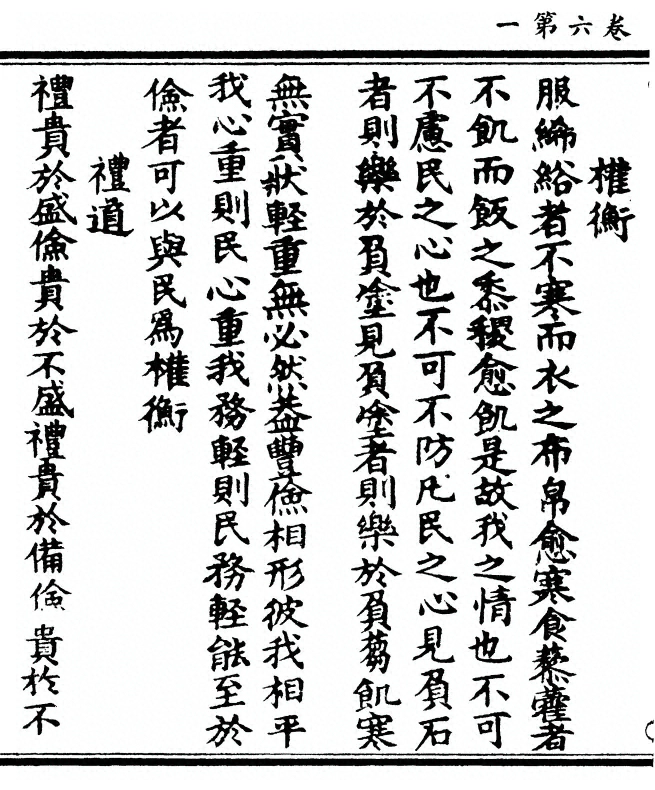 卷六第一
權衡
服絺綌者不寒而衣之布帛愈寒食藜藿者
不飢而飯之黍稷愈飢是故我之情也不可
不慮民之心也不可不防凡民之心見負石
者則樂於負塗見負塗者則樂於負芻飢寒
無實狀輕重無必然葢豐儉相形彼我相平
我心重則民心重我務輕則民務輕能至於
儉者可以與民爲權衡
禮道
禮貴於盛儉貴於不盛禮貴於備儉貴於不